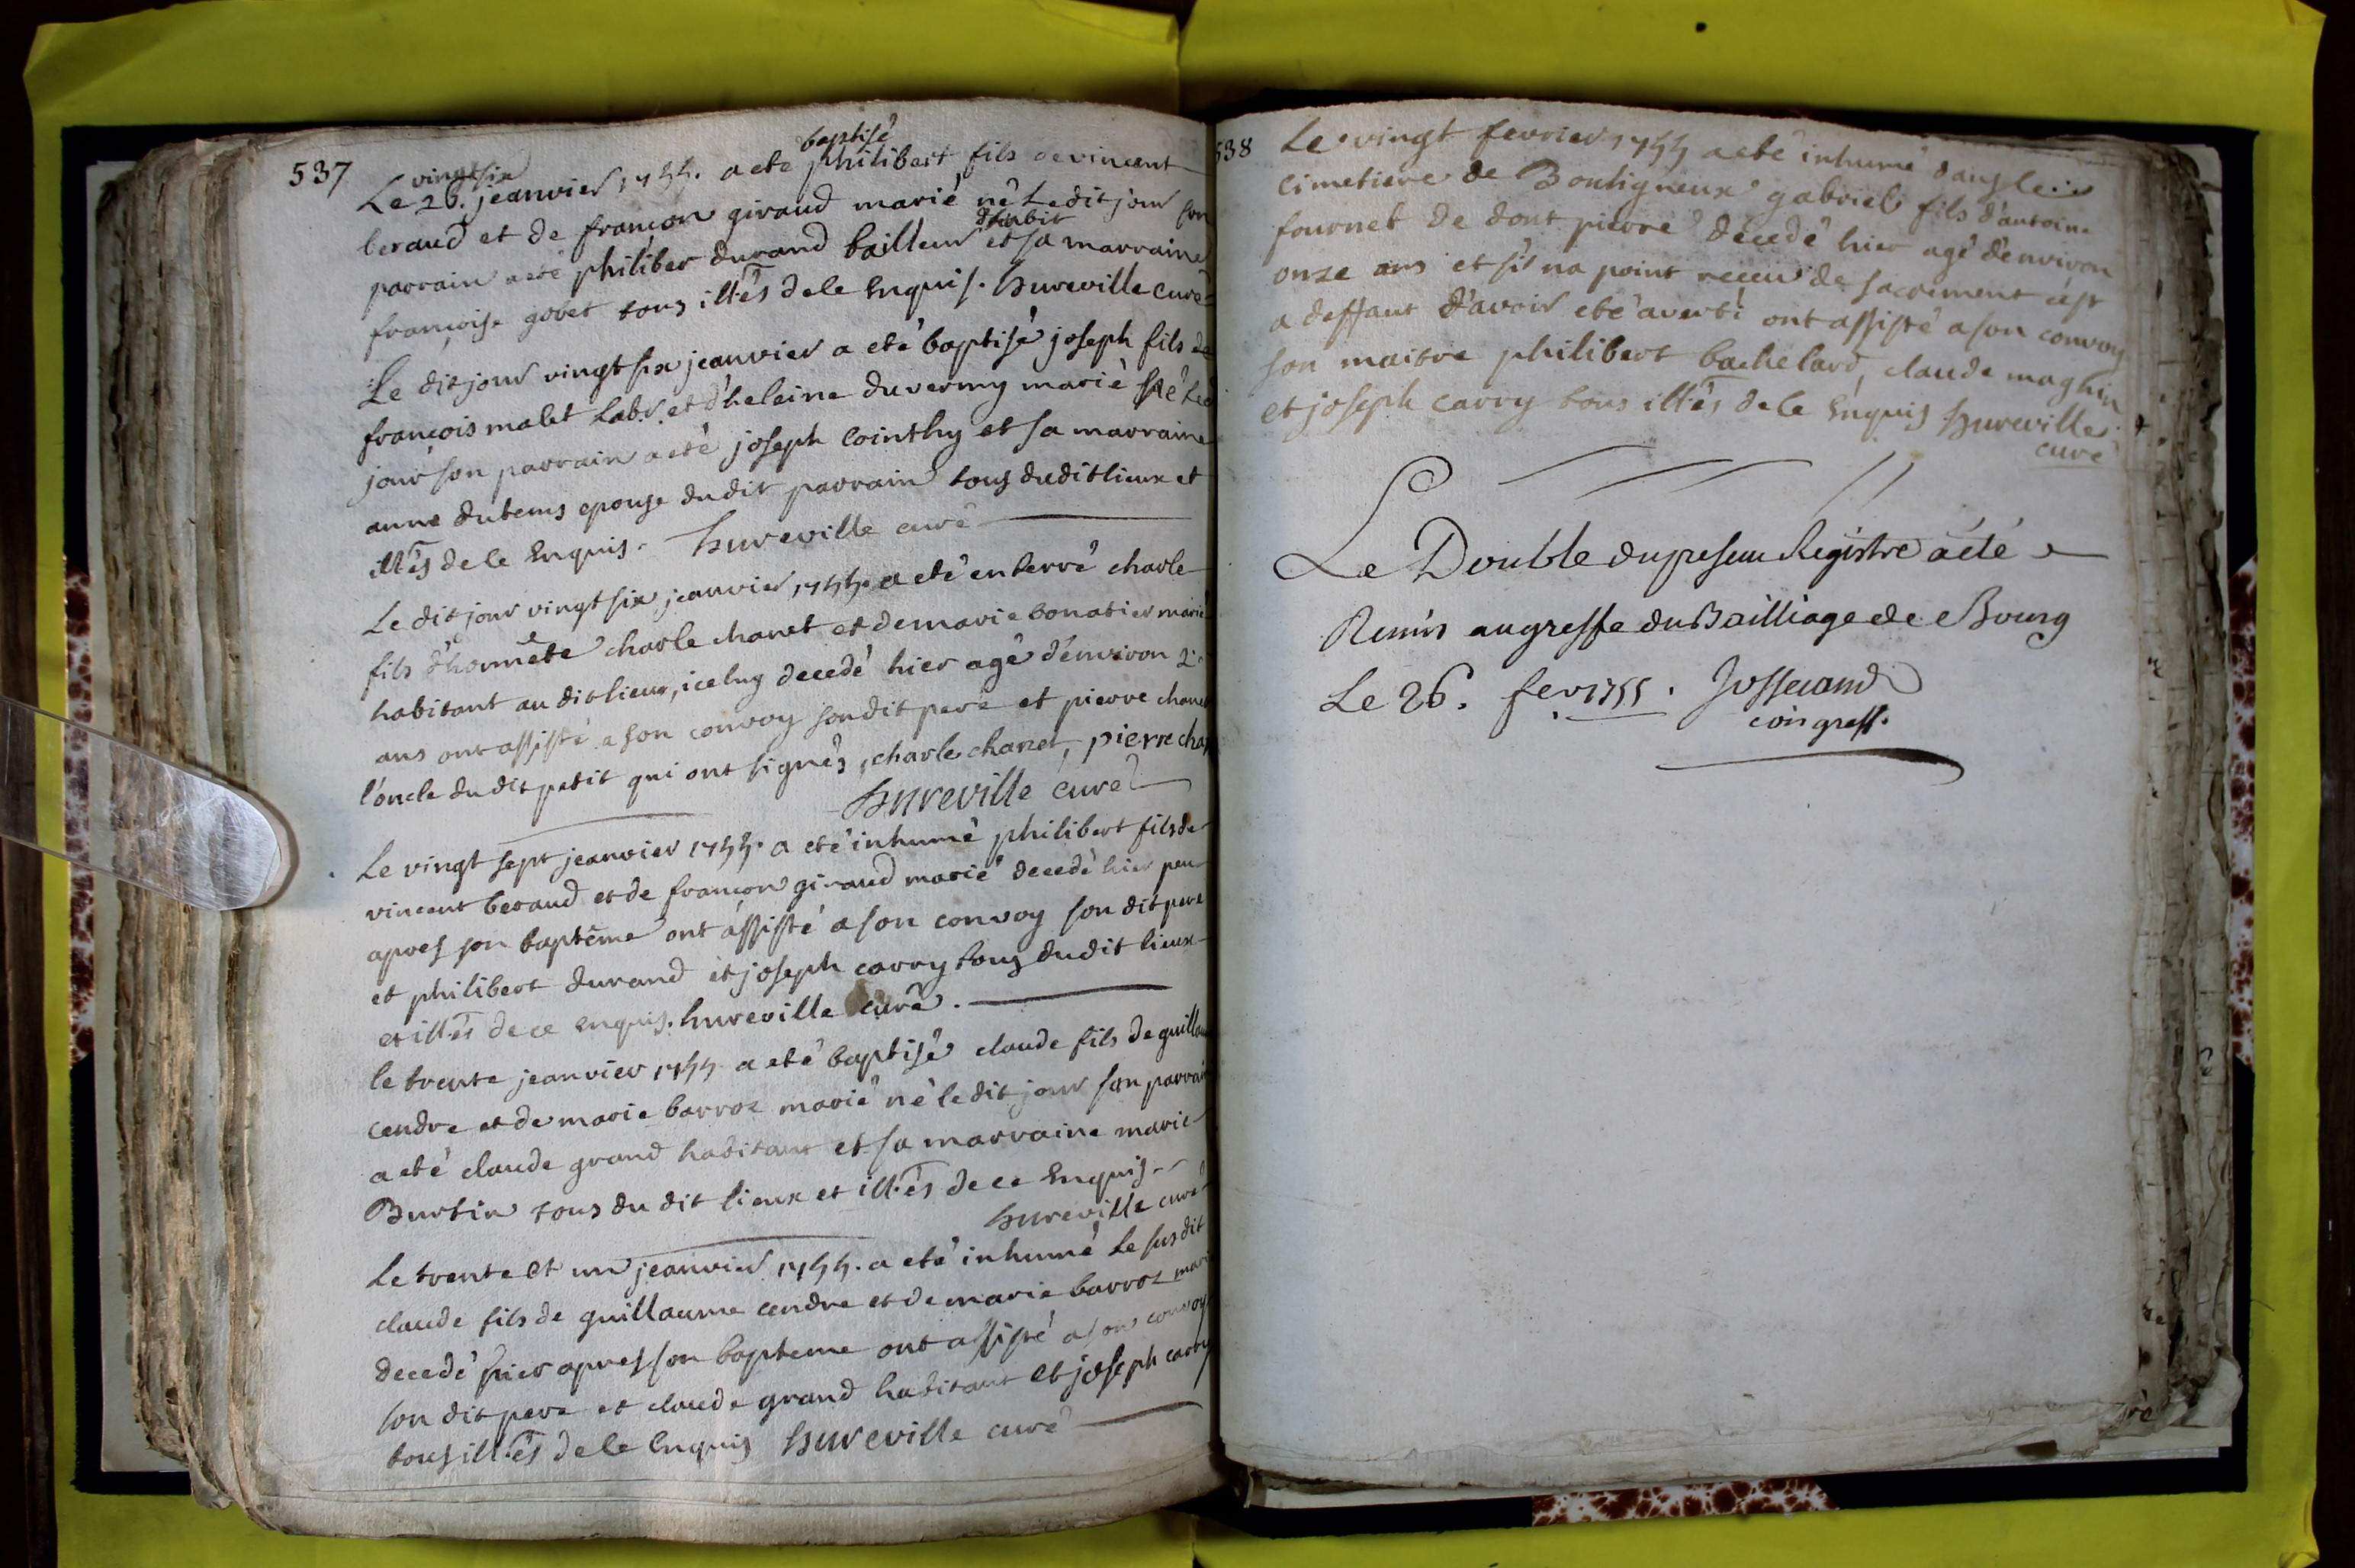 537
baptisé
vingtsix
Le 26. jeanvier 1755. a eté philibert fils de vincent
beraud et de françon giraud marié né Ledit jour son
parrain a eté philiber durand bailleur et sa marraine
françoise gobet tous illés de le Enquis. hureville curé
Le dit jour vingt six jeanvier a eté baptisé joseph fils de
françois malet Labr. et d'heleine duverny marié né Led
jour son parrain a eté joseph Cointhy et sa marraine
anne dutems epouse dudit parrain tous dudit lieux et
illés de le Enquis. hureville curé
Le dit jour vingt six jeanvier 1755. a eté enterré charle
fils d'honnête charle chanet et de marie bonatier marié
habitant au dit lieux, iceluy decedé hier agé d'environ 2
ans ont assisté a son convoy son dit pere et pierre chanet
l'oncle du dit petit qui ont signés, charle chanet, pierre cha
hureville curé
Le vingt sept jeanvier 1755. a eté inhumé philibert fils de
vincent beraud et de françon giraud marié decedé hier peu
apres son baptême ont assisté a son convoy son dit pere
et philibert durand et joseph carry tous dudit lieux
et illés de ce enquis. hureville curé.
le trente jeanvier 1755 a eté baptisé claude fils de guillau
cendre et de marie barroz marié né le dit jour son parrain
a eté claude grand habitant et sa marraine marie
Burtin tous du dit lieux et illés de ce Enquis
hureville curé
Le trente et un jeanvier 1755. a eté inhumé Le susdit
claude fils de guillaume cendre et de marie barroz mari
decedé hier apres son bapteme ont assisté a son convoy
son dit pere et claude grand habitant et joseph carry
tous illés de le Enquis hureville curé
538
Le vingt fevrier 1755 a eté inhumé dans le
cimetiere de Bouligneux gabriel fils d'antoine
fournet de dont pierre decedé hier agé d'environ
onze ans et s'il na point receu de sacrement c'est
a deffaut d'avoir eté averti ont assisté a son convoy
son maitre philibert bachelard, claude maghin
et joseph carry tous illés de le Enquis hureville
curé
Le Double du presen Registre a été
Remis au greffe du Bailliage de Bourg
Le 26. fev 1755. Josserand
com greff.